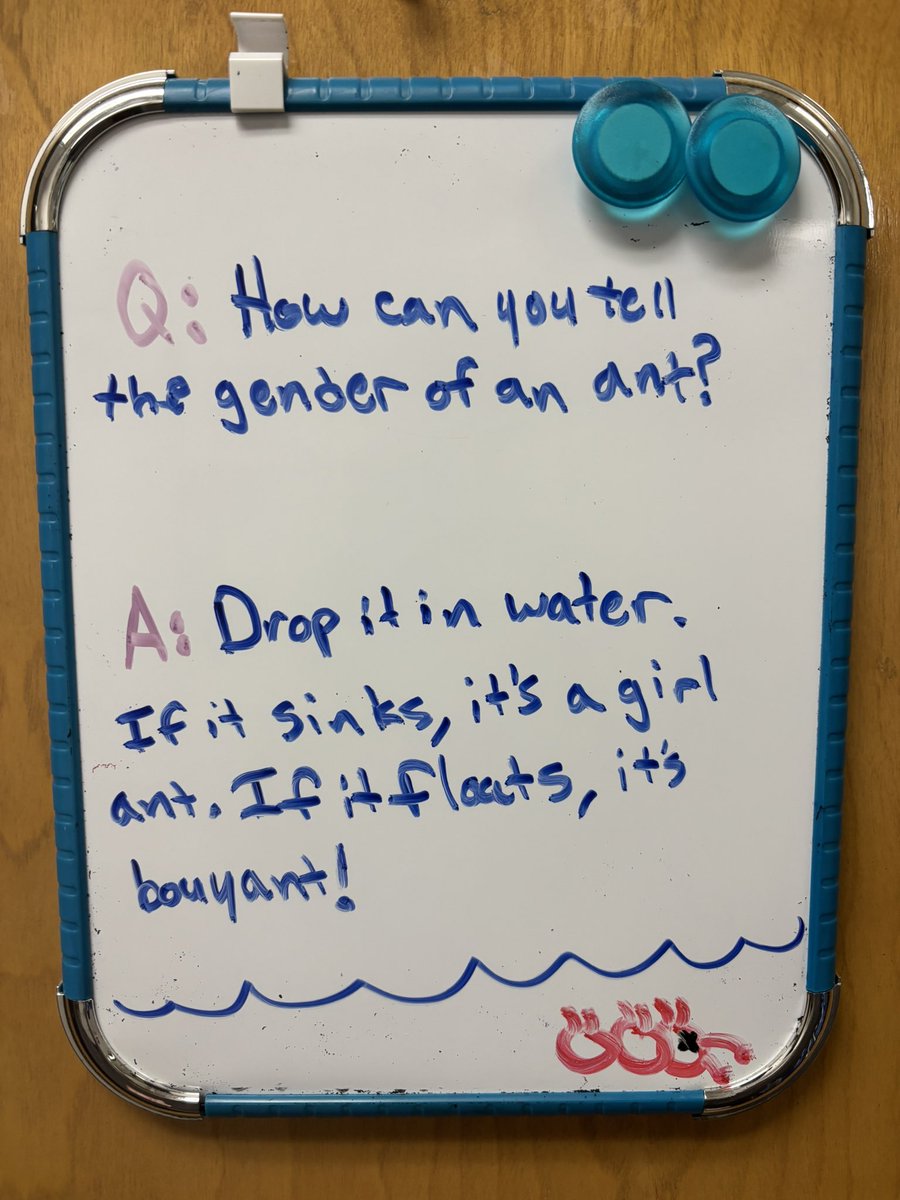 Q: How can you tell
the gender of an ant?
A: Drop it in water.
If it sinks, it's a girl
ant. If it floats, it's
bouyant!